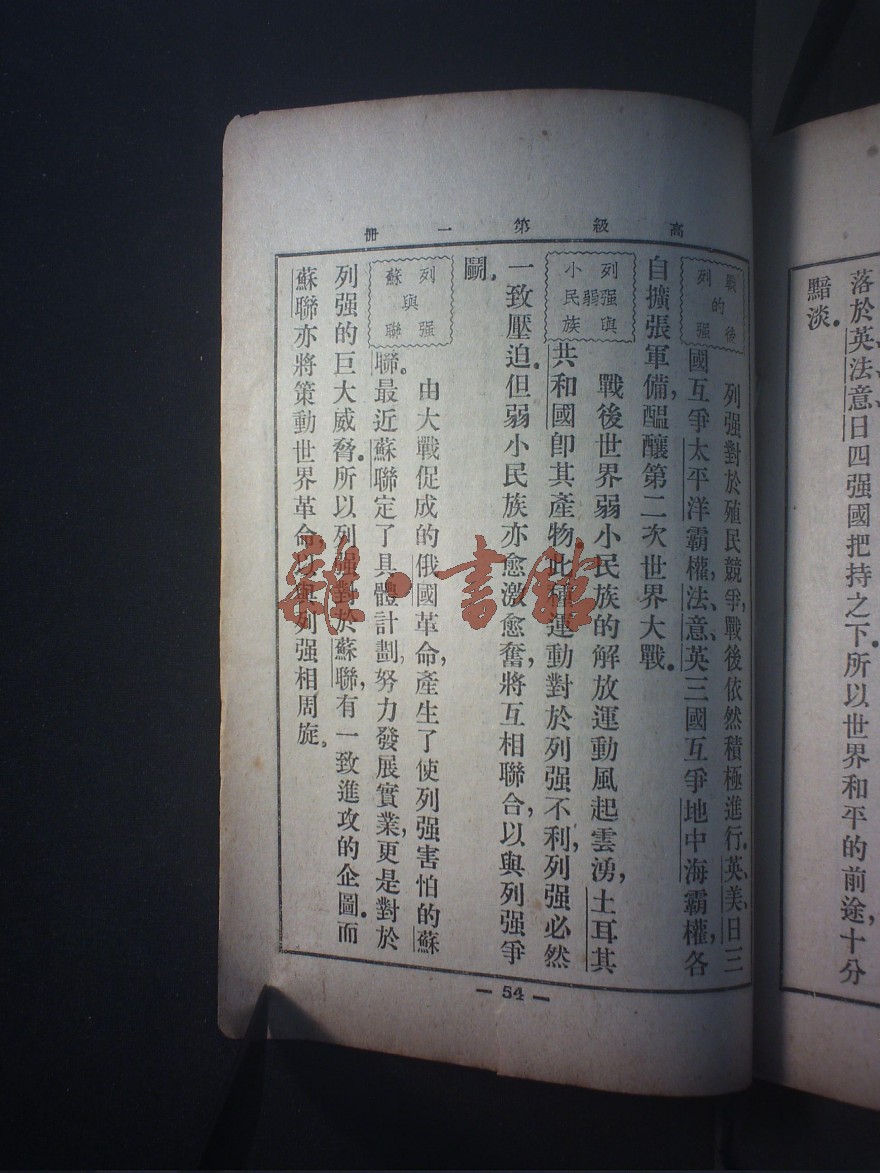 落於英、法、意、日四强國把持之下。所以世界和平的前途，十分
黯淡。
高級第一册
戰後
的
列强
列强對於殖民競爭，戰後依然積極進行。英、美、日三
國互爭太平洋霸權，法、意、英三國互爭地中海霸權，各
自擴張軍備，醞釀第二次世界大戰。
列强與
弱
小民族
戰後世界弱小民族的解放運動風起雲湧，土耳其
共和國卽其產物。此種運動對於列强不利，列强必然
一致壓迫。但弱小民族亦愈激愈奮，將互相聯合，以與列强爭
鬭。
列强
與
蘇聯
由大戰促成的俄國革命，產生了使列强害怕的蘇
聯。最近蘇聯定了具體計劃，努力發展實業，更是對於
列强的巨大威脅。所以列强對於蘇聯，有一致進攻的企圖。而
蘇聯亦將策動世界革命，以與列强相周旋。
— 54 —
雜·書館